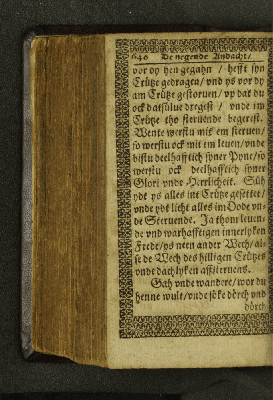 640 De negende Andacht/
vor dy hen gegahn / hefft syn
Crütze gedragen/ vnd ys vor dy
am Crütze gestoruen/ vp dat du
ock datsülue dregest / vnde im
Crütze tho steruende begerest.
Wente werstu mit em steruen/
so werstu ock mit em leuen/ vnde
bistu deelhafftich syner Pyne/ so
werstu ock deelhafftich syner
Glori vnde Herrlicheit. Süh
ydt ys alles int Crütze gesettet/
vnde ydt licht alles im Dode vn-
de Steruende. Ja thom leuen-
de vnd warhafftigen innerlyken
Frede/ ys neen ander Wech/ al-
se de Wech des hilligen Crützes
vnde dachlyken affsteruens.
Gah vnde wandere/ wor du
henne wult/ vnde söke dörch vnd
dörch